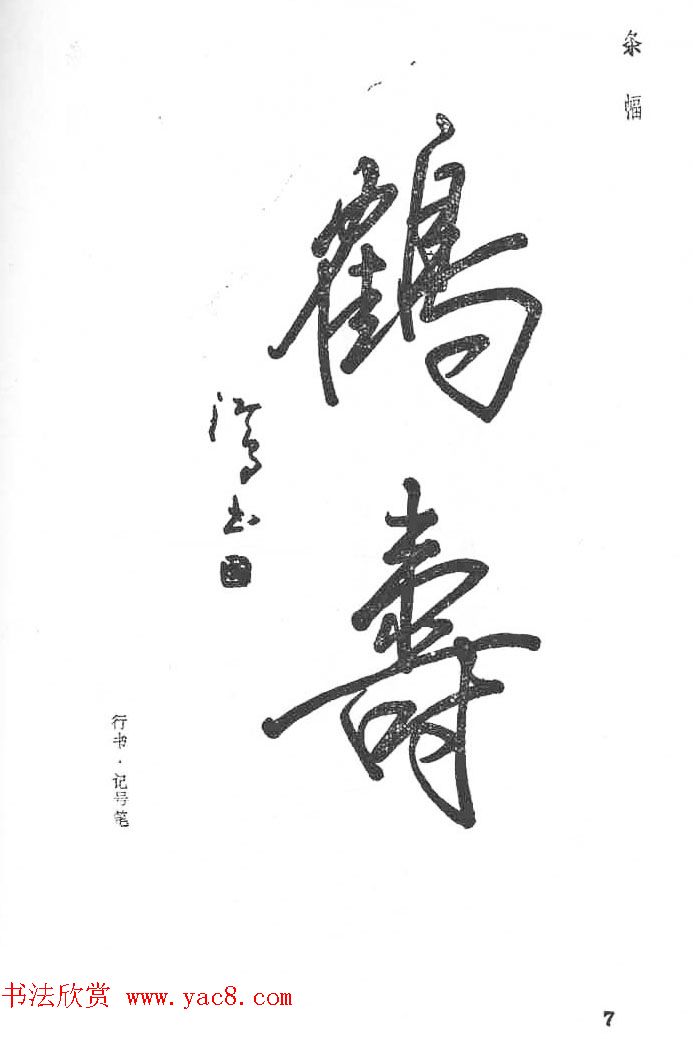 条幅
鹤寿
书
行书·记号笔
书法欣赏 www.yac8.com
7